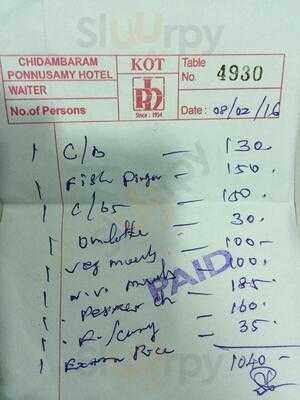 Sluurpy
CHIDAMBARAM
PONNUSAMY HOTEL
WAITER
No.of Persons
KOT
Since : 1954
Table
No. 4930
Date : 08/02/16
1 C/B — 130
1 Fish finger — 150.
1 C/65 — 150
1 Omlette — 30.
1 Veg meals — 100-
1 N.V. meals — 100.
1 Pepper Ch — 185-
1 F/Curry — 160.
1 Extra Rice — 35.
1040-
PAID